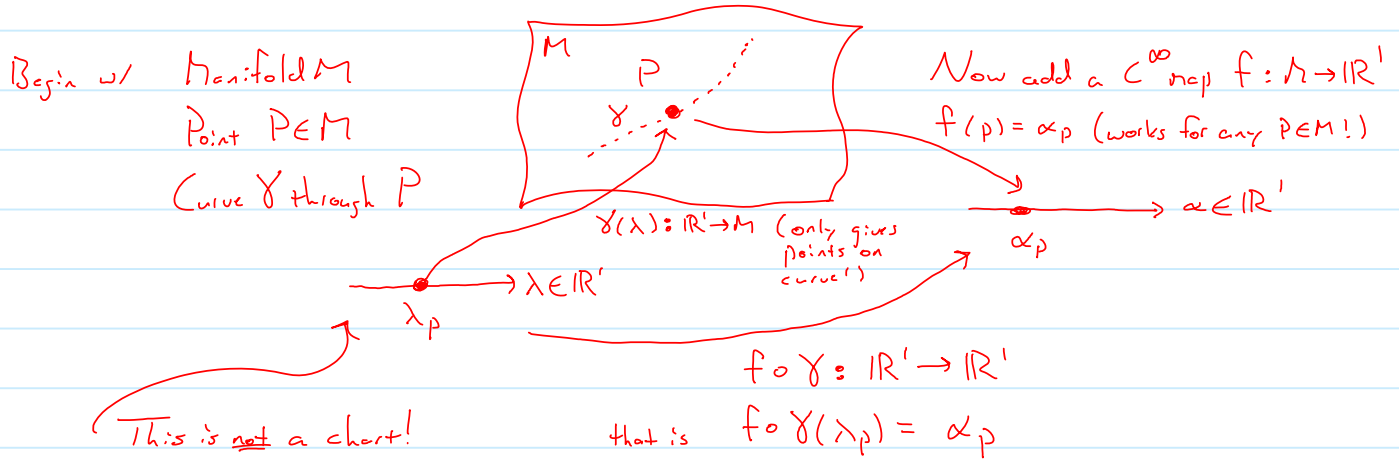 Begin w/ Manifold M
Point P∈M
Curve γ through P
M
P
γ
γ(λ): ℝ¹→M (only gives
points on
curve!)
λ∈ℝ¹
λₚ
This is not a chart!
Now add a C^∞ map f: M→ℝ¹
f(p) = αₚ (works for any P∈M!)
α∈ℝ¹
αₚ
f∘γ: ℝ¹→ℝ¹
that is f∘γ(λₚ) = αₚ